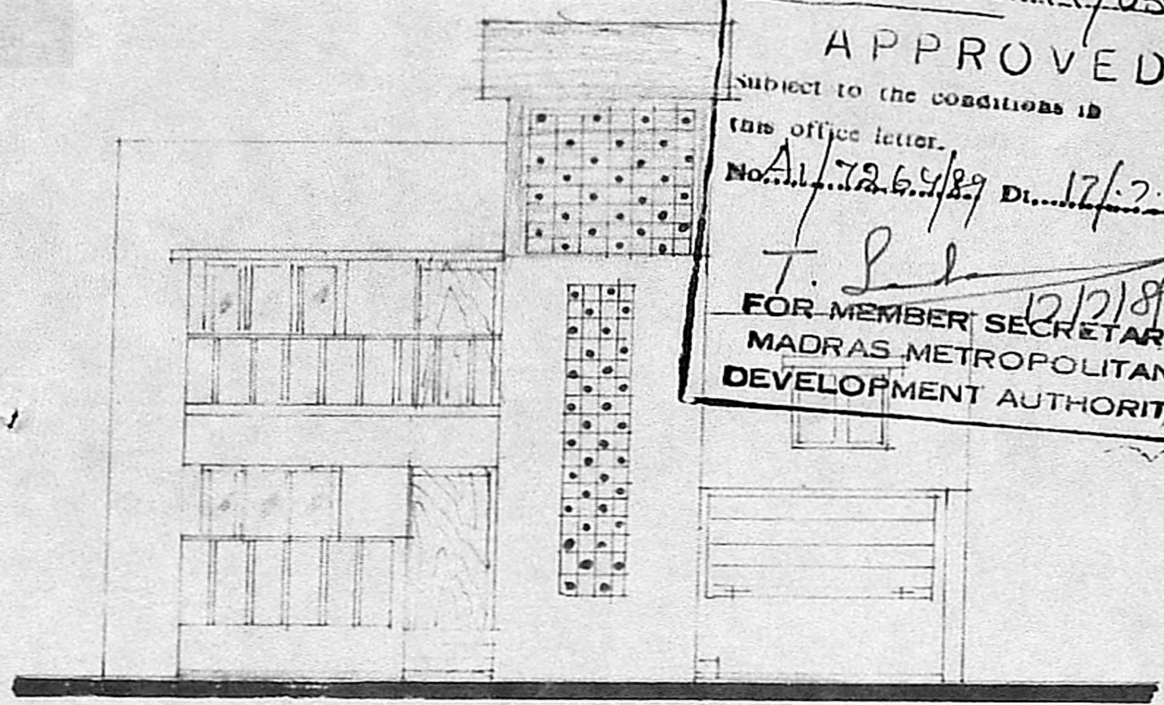 APPROVED
Subject to the conditions in
this office letter.
No. A1/7264/89 Dt. 12/.7.
T.
12/7/8
FOR MEMBER SECRETAR
MADRAS METROPOLITAN
DEVELOPMENT AUTHORIT